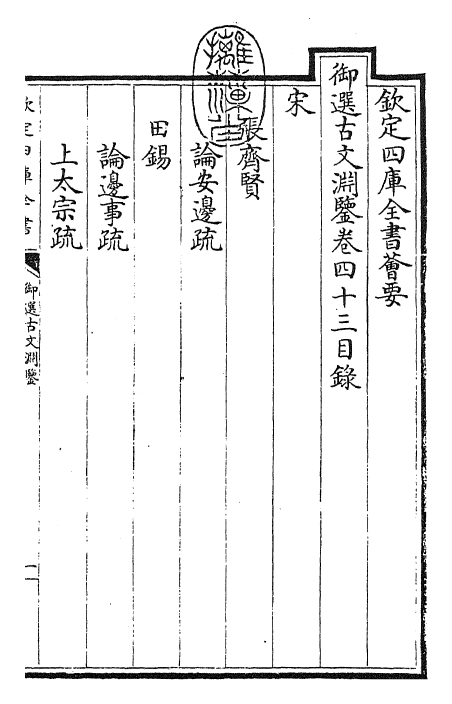 欽定四庫全書薈要
御選古文淵鑒卷四十三目錄
宋
張齊賢
論安邊疏
田錫
論邊事疏
上太宗疏
欽定四庫全書
御選古文淵鑒
一
擒藻堂